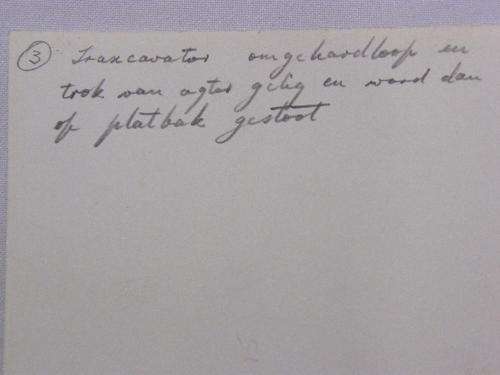 ③ Traxcavator omgehardloop en
trok van agter gelig en word dan
op platbak gestoot